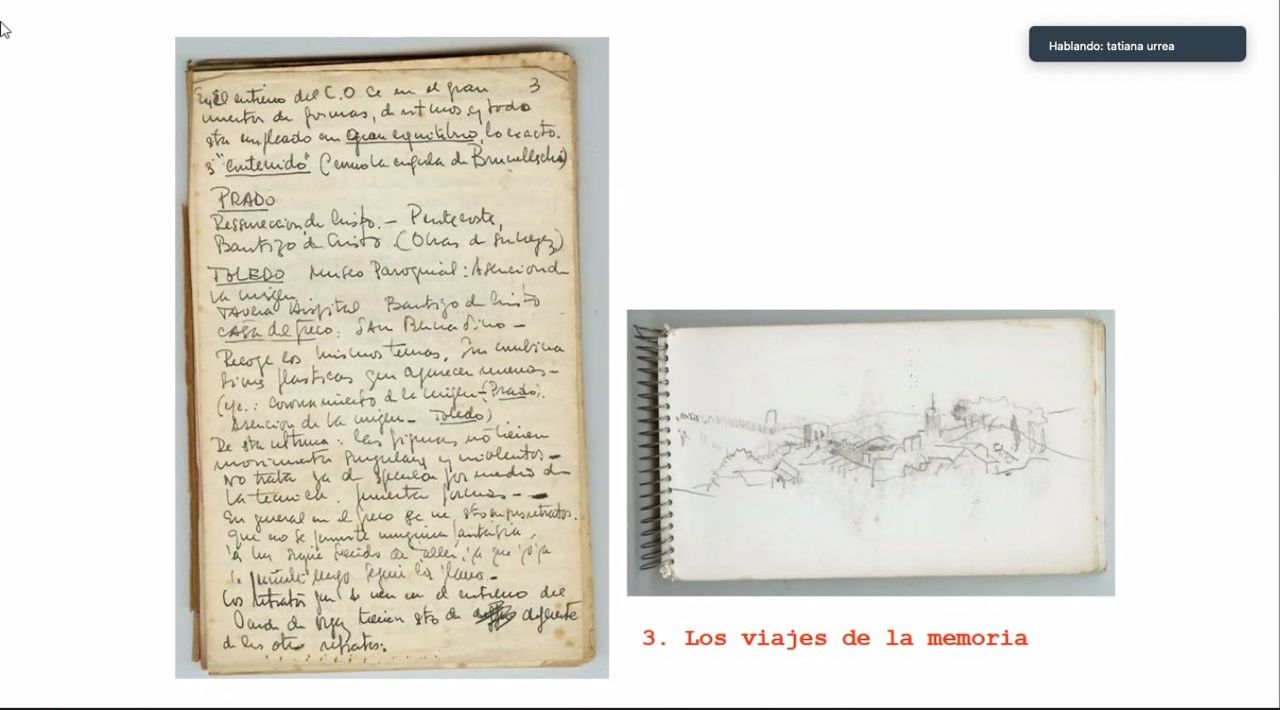 Hablando: tatiana urrea
3
En el entierro del C. O se ve el gran
inventor de formas, de ritmos, y todo
esta empleado en gran equilibrio, lo exacto.
y "contenido" (como la cupula de Brunelleschi)
PRADO
Resurreccion de Cristo. — Pentecoste,
Bautizo de Cristo. (Obras de
TOLEDO Museo Paroquial: Asencion de
la Virgen.
TAVERA Hospital Bautizo de Cristo
CASA del Greco: San Bernardino —
Recoge los mismos temas,
plasticas que aparecen nuevas —
(eje.: coronamiento de la Virgen — (Prado).
Asencion de la Virgen — Toledo)
De esta ultima: las figuras no tienen
movimientos singulares y violentos —
No trata ya de por medio de
la tecnica. inventa formas —
En general en el Greco se ve esto en sus retratos.
que no se permite ninguna fantasia,
luego seguir los
Los retratos que se ven en el entierro del
Conde de Orgaz tienen esto de diferente
de los otros retratos.
3. Los viajes de la memoria